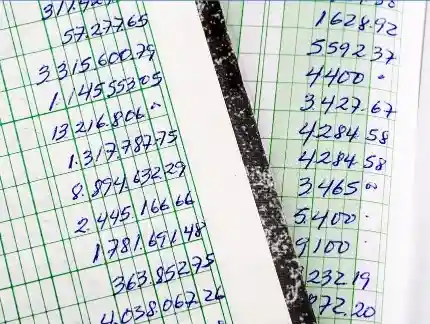 57277.65
3315600.79
1.14555305
13216.806 00
1.317.787.75
8.894.632.29
2.445.166.66
1781.691.48
363.852.75
4.038.067.26
1628.92
5592 37
4400 -
3427.67
4284.58
4284 58
3465 00
5400 -
9100 -
232 19
72.20